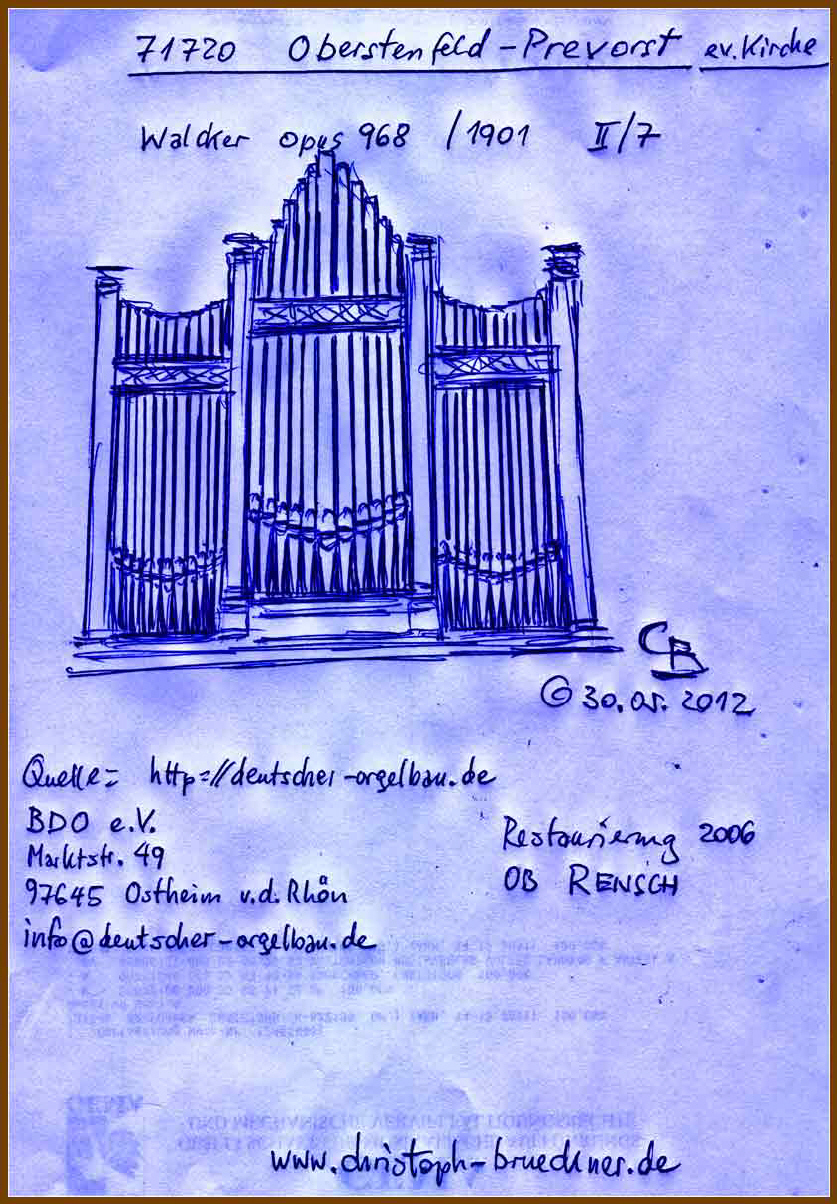 71720 Oberstenfeld-Prevorst ev. Kirche
Walcker opus 968 /1901 II/7
CB
© 30.05.2012
Quelle: http://deutscher-orgelbau.de
BDO e.V.
Marktstr. 49
97645 Ostheim v.d. Rhön
info@deutscher-orgelbau.de
Restaurierung 2006
OB RENSCH
www.christoph-brueckner.de